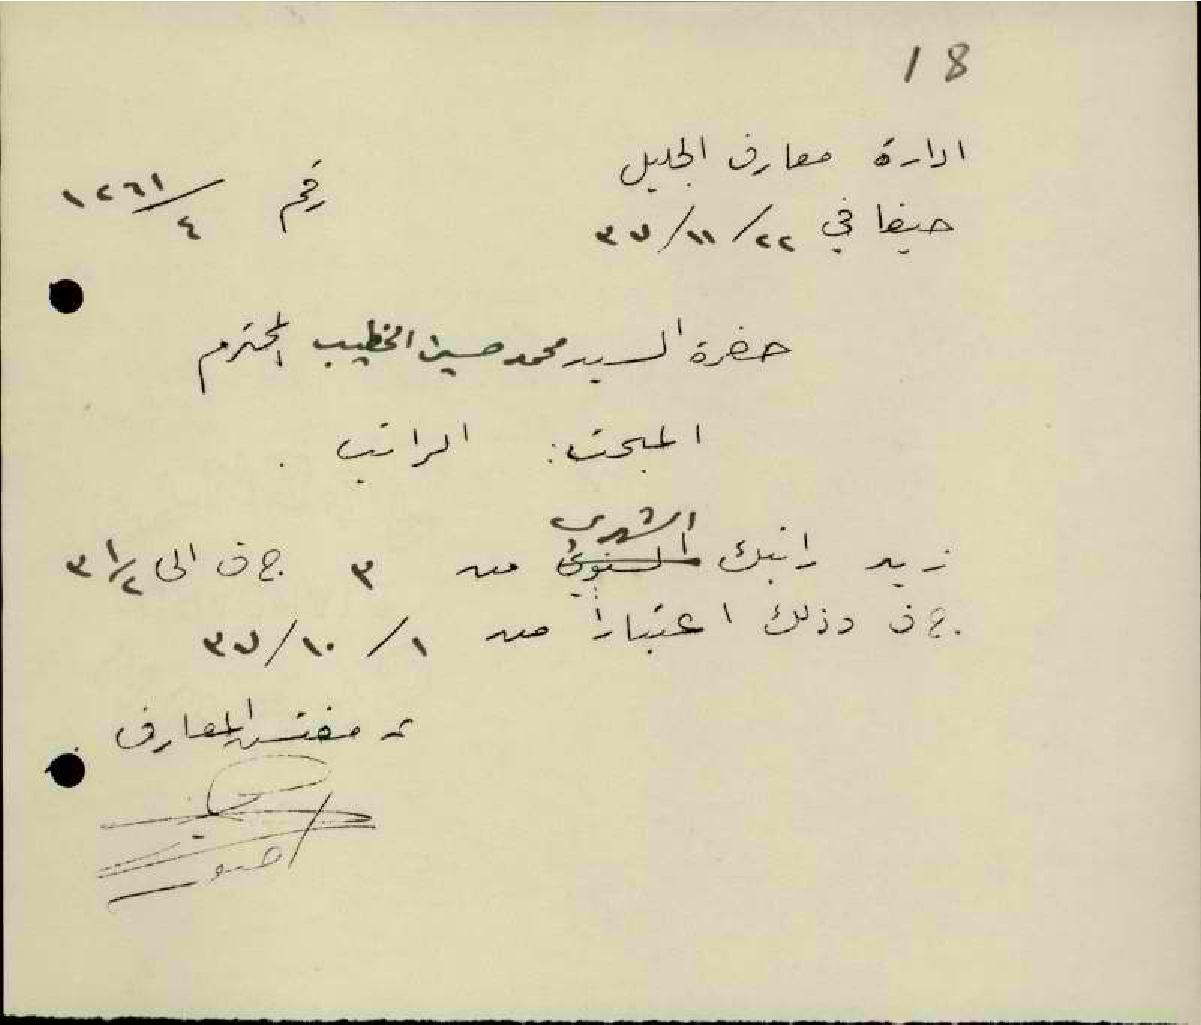 18
ادارة معارف الجليل
رقم ١٢٦١/٤
حيفا في ٢٢/١١/٣٧
حضرة السيد محمد حسين الخطيب المحترم
المبحث: الراتب.
زيد راتبك السنوي الشهري من ٣ ج ف الى ٣ ١/٢
ج ف وذلك اعتباراً من ١/١٠/٣٧
مفتش المعارف